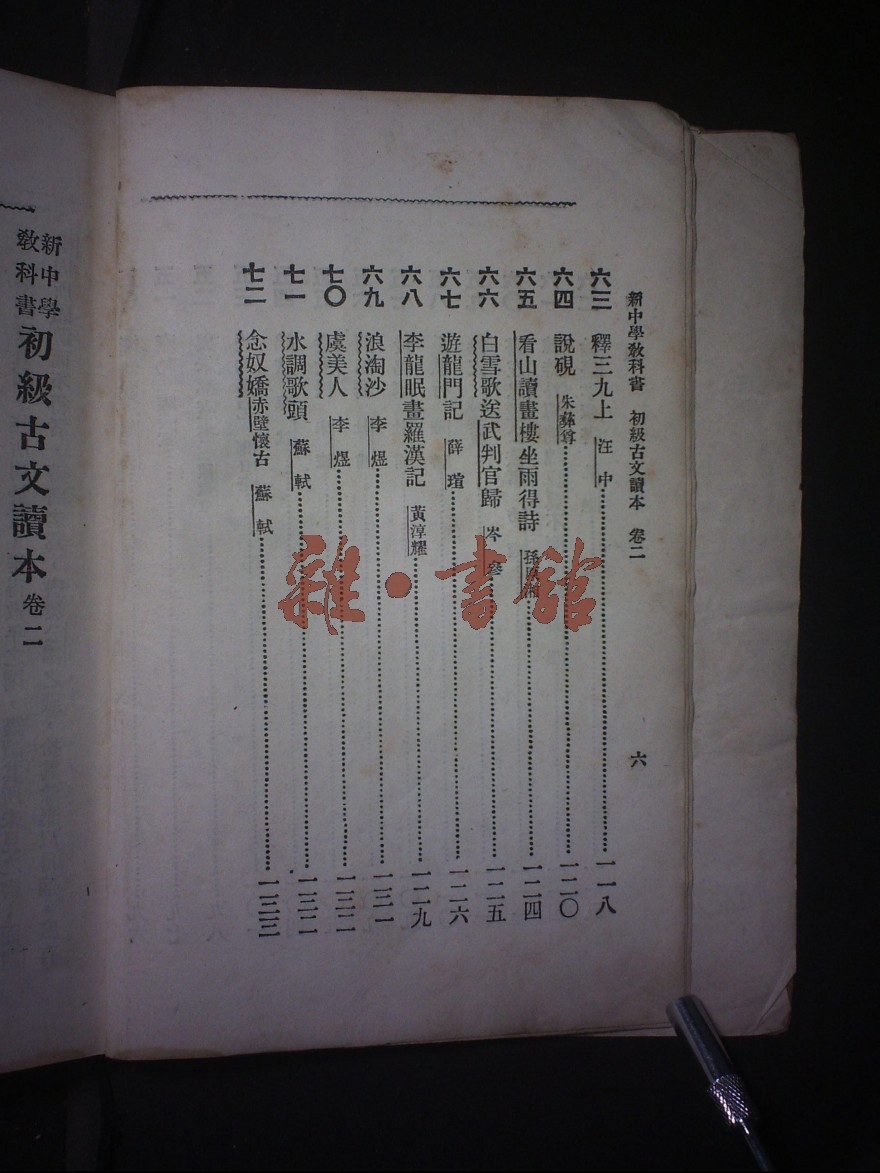 新中學教科書　初級古文讀本　卷二
六
六三　釋三九上　汪中　一一八
六四　說硯　朱彝尊　一二〇
六五　看山讀畫樓坐雨得詩　孫　一二四
六六　白雪歌送武判官歸　岑參　一二五
六七　遊龍門記　薛瑄　一二六
六八　李龍眠畫羅漢記　黃淳耀　一二九
六九　浪淘沙　李煜　一三一
七〇　虞美人　李煜　一三二
七一　水調歌頭　蘇軾　一三二
七二　念奴嬌赤壁懷古　蘇軾　一三三
新中學教科書　初級古文讀本　卷二
雜·書館